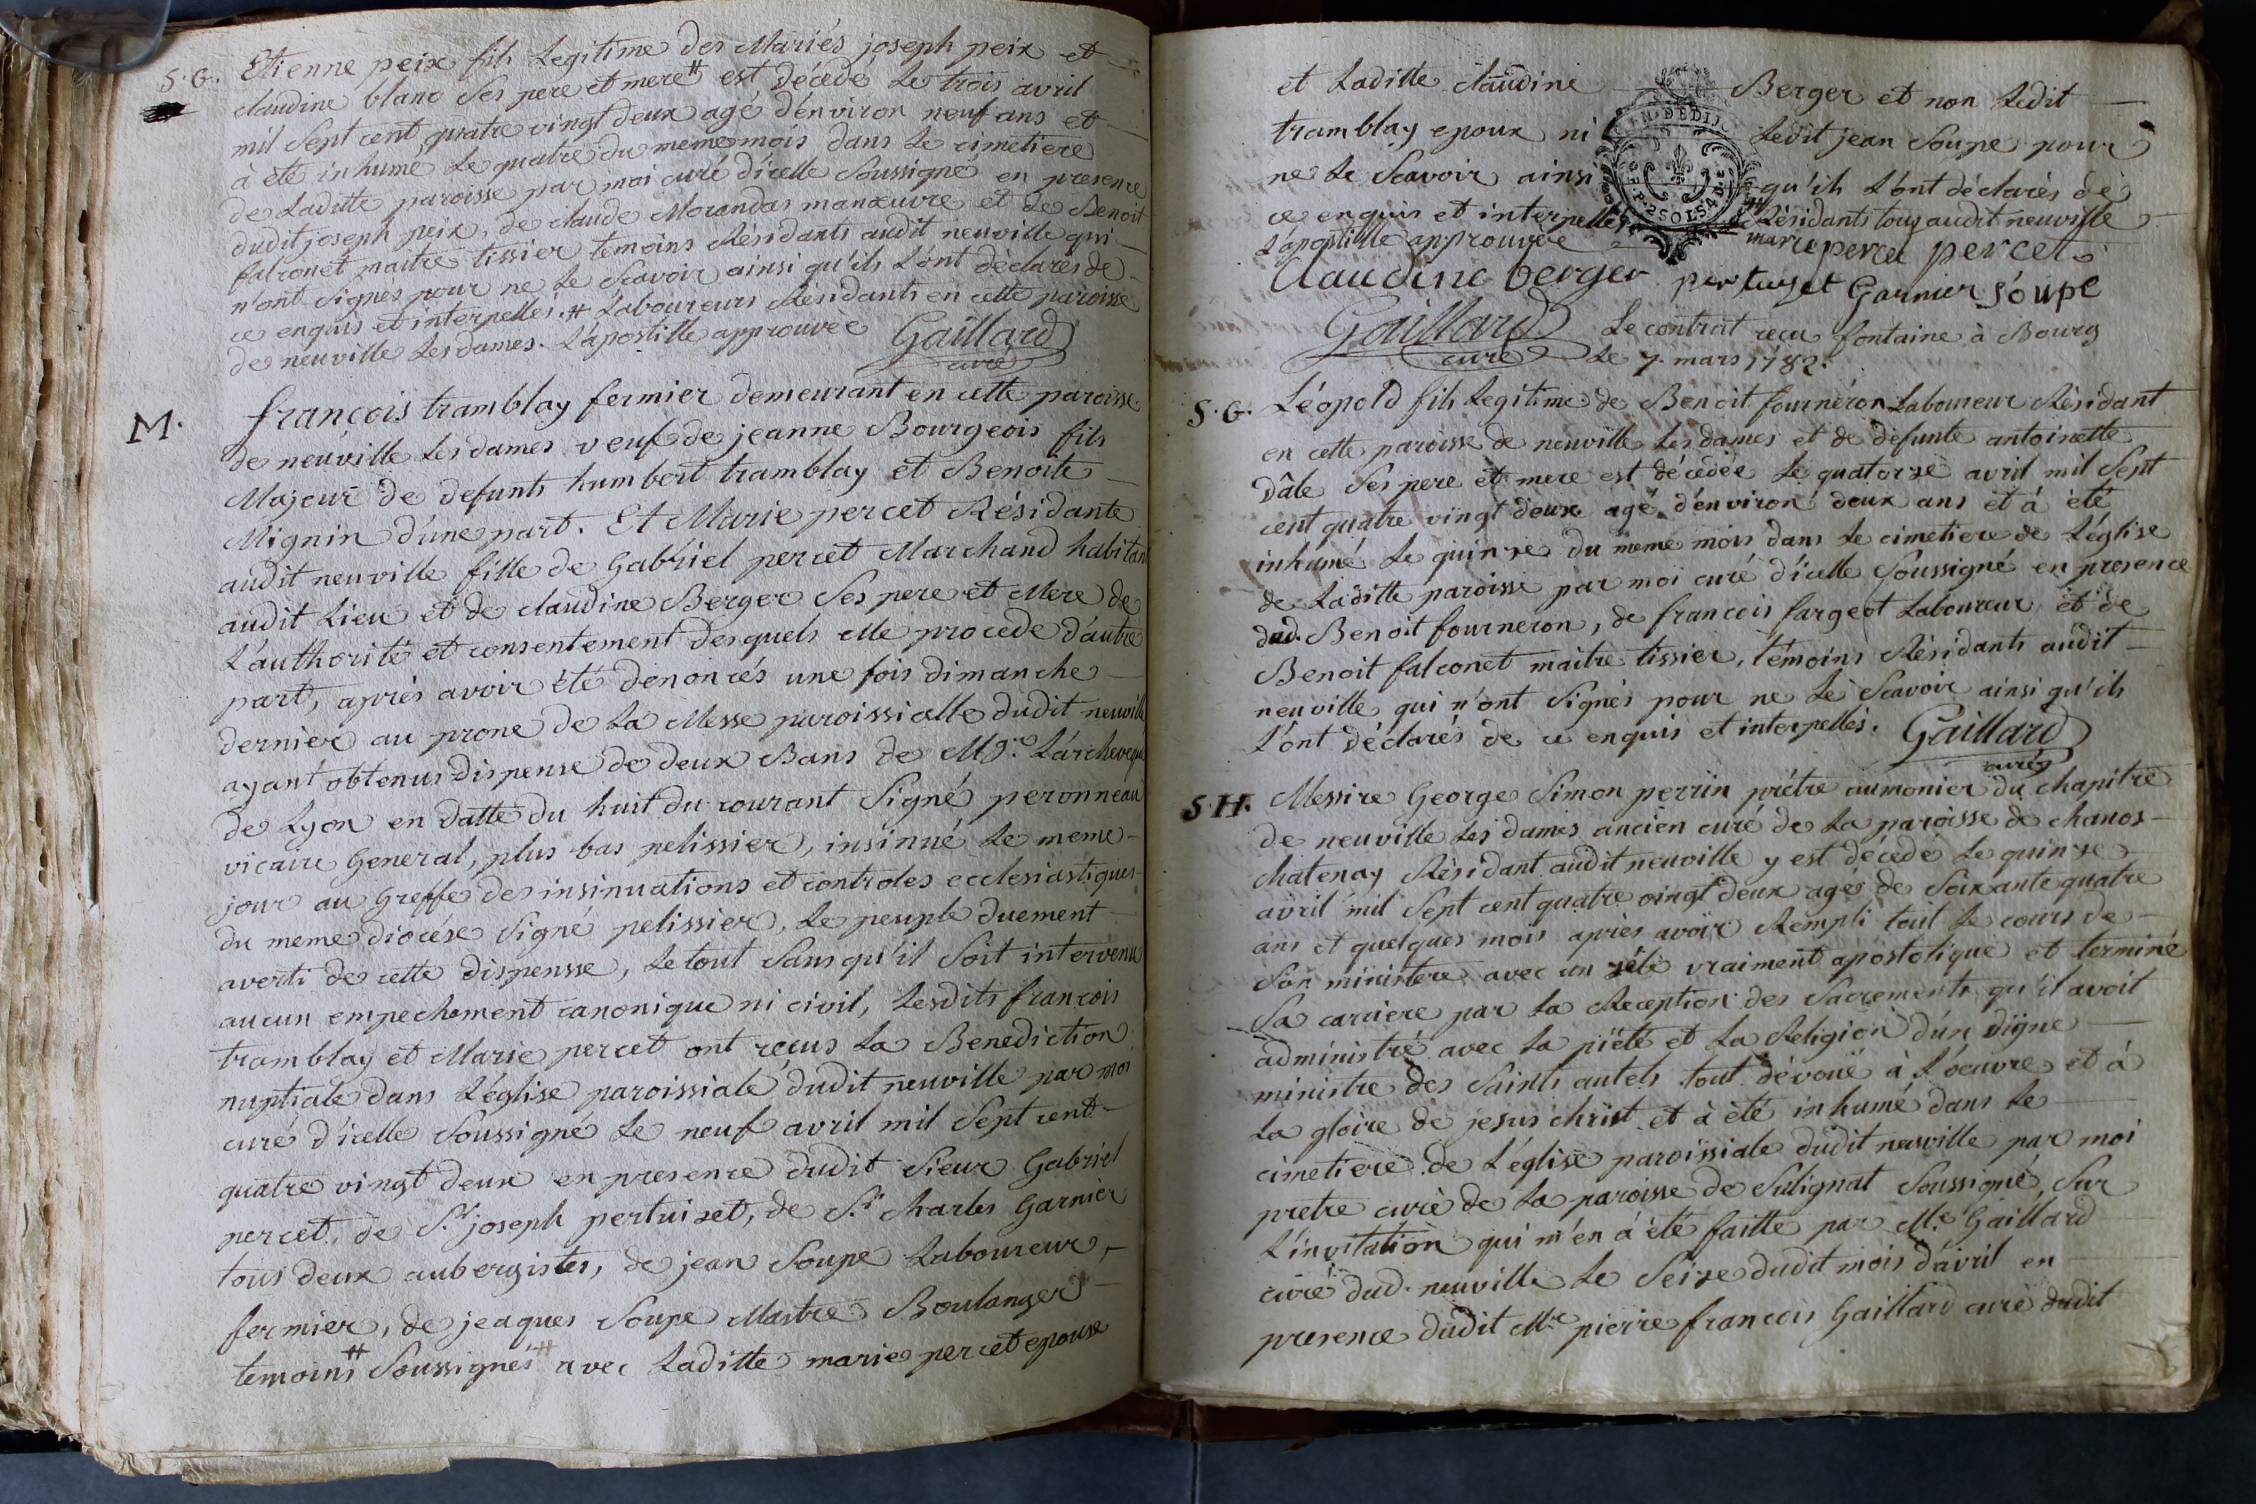 S. G. Etienne peix fils Legitime des Mariés joseph peix et
claudine blanc Ses pere et mere # est décédé Le trois avril
mil Sept cent quatre vingt deux agé d'environ neuf ans et
à été inhumé Le quatre du meme mois dans Le cimetiere
de Laditte paroisse par moi curé d'icelle Soussigné en presence
dudit joseph peix, de claude Morandas manœuvre et de Benoit
falconet maitre tissier temoins Résidants audit neuville qui
n'ont Signés pour ne Le Scavoir ainsi qu'ils L'ont déclarés de
ce enquis et interpellés. # Laboureurs Résidants en cette paroisse
de neuville Les dames. L'apostille approuvée Gaillard
curé
M. françois tramblay fermier demeurant en cette paroisse
de neuville Les dames veuf de jeanne Bourgeois fils
Majeur de defunts humbert tramblay et Benoite
Mignin d'une part. Et Marie percet Résidante
audit neuville fille de Gabriel percet Marchand habitant
audit Lieu et de claudine Berger Ses pere et Mere de
L'authorité et consentement desquels elle procede d'autre
part, après avoir été denoncés une fois dimanche
dernier au prone de La Messe paroissialle dudit neuville
ayant obtenus dispense de deux Bans de Mgr. L'archeveque
de Lyon en datte du huit du courant Signé peronneau
vicaire General, plus bas pelissier, insinué Le meme
jour au Greffe des insinuations et controles ecclesiastiques
du meme diocése Signé pelissier, Le peuple duement
averti de cette dispensse, Le tout Sans qu'il Soit intervenu
aucun empechement canonique ni civil, Lesdits françois
tramblay et Marie percet ont reçus La Benediction
nuptiale dans L'église paroissiale dudit neuville par moi
curé d'icelle Soussigné Le neuf avril mil Sept cent
quatre vingt deux en presence dudit Sieur Gabriel
percet, de Sr. joseph pertuizet, de Sr. Charles Garnier
tous deux aubergistes, de jean Soupe Laboureur,
fermier, de jeaques Soupe Maitre Boulanger
temoins # Soussignés # avec Laditte marie percet epouse
et Laditte claudine Berger et non Ledit
tramblay epoux ni Ledit jean Soupe pour
ne Le Scavoir ainsi qu'ils L'ont déclarés de
ce enquis et interpellés. # Résidants tous audit neuville
L'apostille approuvée marie percet percet
Claudine berger pertuizet Garnier Soupe
Gaillard Le contrat reçu fontaine à Bourg
curé Le 7. mars 1782.
S. G. Léopold fils Legitime de Benoit fourneron Laboureur Résidant
en cette paroisse de neuville Les dames et de defunte antoinette
dâle Ses pere et mere est décédée Le quatorze avril mil Sept
cent quatre vingt deux agé d'environ deux ans et à été
inhumé Le quinze du meme mois dans Le cimetiere de L'église
de Laditte paroisse par moi curé d'icelle Soussigné en presence
dud. Benoit fourneron, de francois fargeot Laboureur et de
Benoit falconet maitre tissier, témoins Résidants audit
neuville qui n'ont Signés pour ne Le Scavoir ainsi qu'ils
L'ont déclarés de ce enquis et interpellés. Gaillard
curé
S. H. Messire George Simon perrin prétre aumonier du chapitre
de neuville Les dames ancien curé de La paroisse de chanos
chatenay Résidant audit neuville y est décedé Le quinze
avril mil Sept cent quatre vingt deux agé de Soixante quatre
ans et quelques mois après avoir Rempli tout Le cours de
Son ministere avec un zéle vraiment apostolique et terminé
Sa carriere par La Reception des Sacrements qu'il avoit
administré avec La piété et La Religion d'un digne
ministre des Saints autels tout dévoué à L'oeuvre et à
La gloire de jesus christ et à été inhumé dans Le
cimetiere de L'église paroissiale dudit neuville par moi
pretre curé de La paroisse de Sulignat Soussigné Sur
L'invitation qui m'en à été faitte par Me. Gaillard
curé dud. neuville Le Seize dudit mois d'avril en
presence dudit Mre pierre francois Gaillard curé dudit